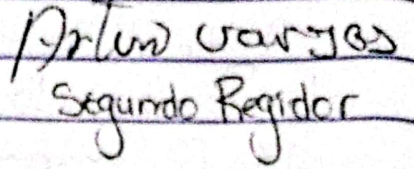 Arturo Vargas
Segundo Regidor